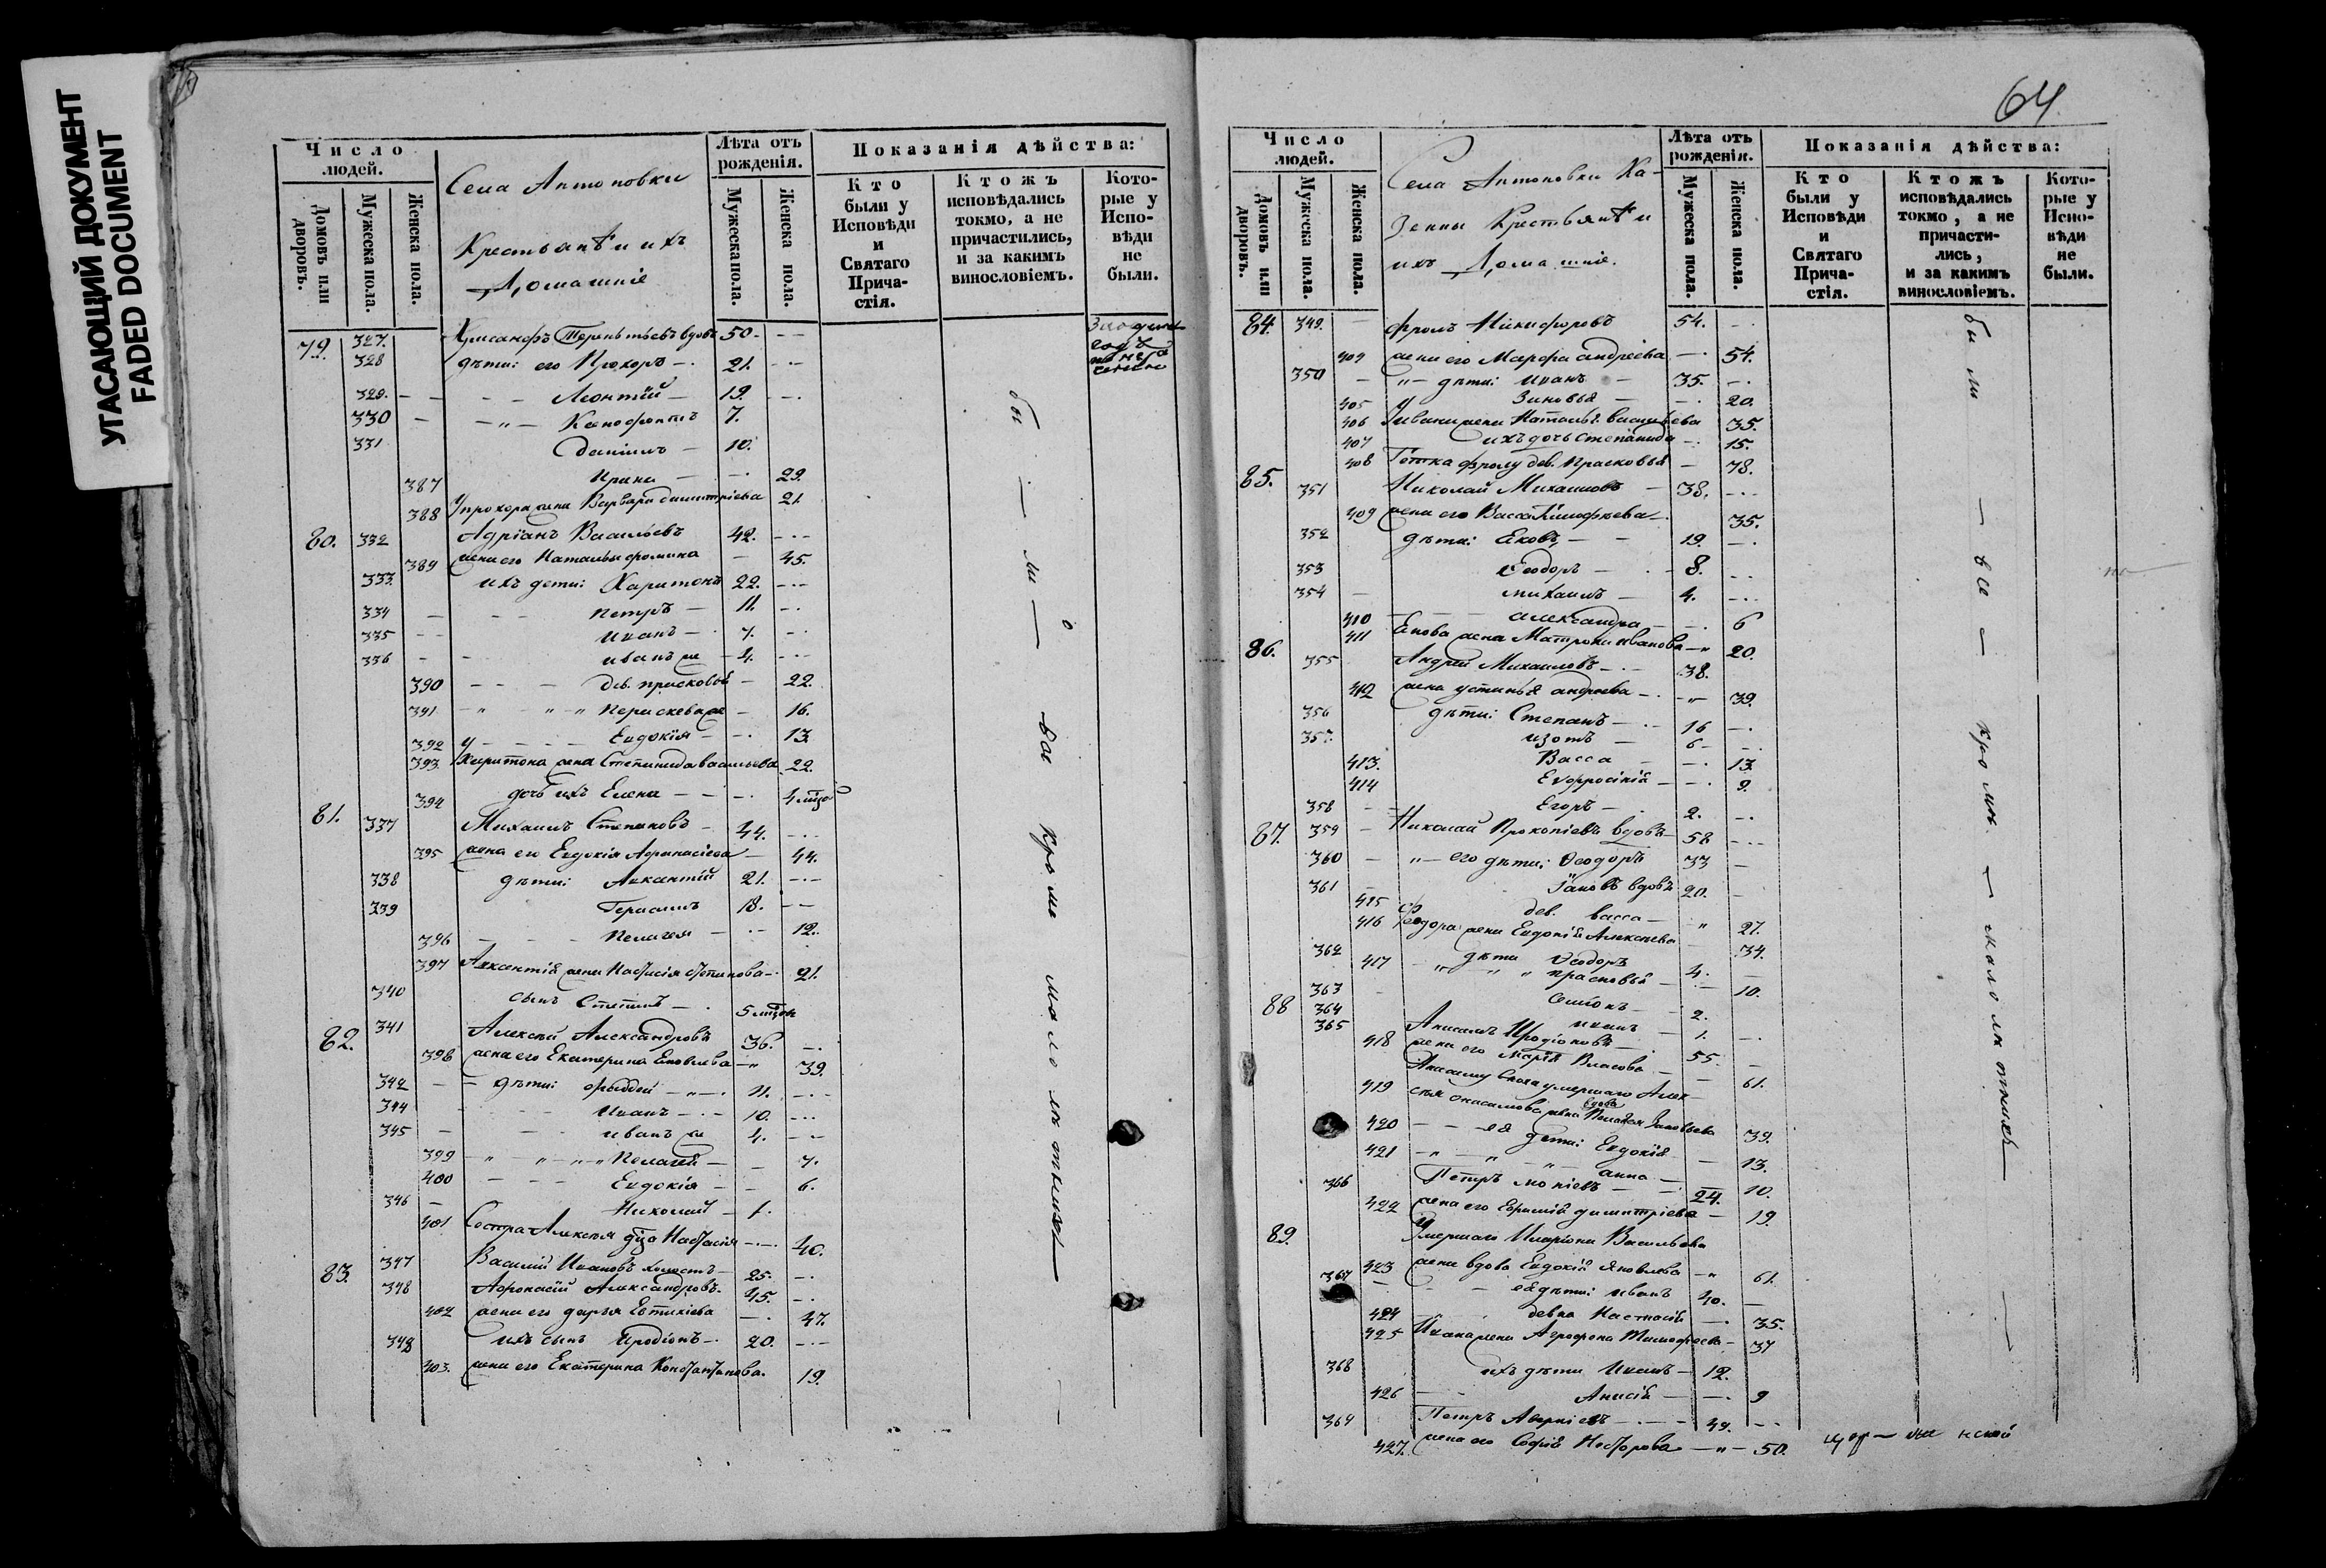 УГАСАЮЩИЙ ДОКУМЕНТ
FADED DOCUMENT
Число людей.
Домовъ или дворовъ.
Мужеска пола.
Женска пола.
Села Антоновки
Крестьянѣ и ихъ
Домашніе
Лѣта отъ рожденія.
Мужеска пола.
Женска пола.
Показанія дѣйства:
Кто были у Исповѣди и Святаго Причастія.
Ктожъ исповѣдались токмо, а не причастились, и за какимъ винословіемъ.
Которые у Исповѣди не были.
79. 327. Хрисанфъ Терентьевъ вдовъ 50.
328 дѣти: его Прохоръ 21.
329. Леонтій 19.
330 Ксенофонтъ 7.
331 Даніилъ 10.
387 Ирина 29.
388 Упрохора жена Варвара Димитріева 21
80. 332 Адріанъ Васильевъ 42.
389 жена его Наталья Фомина 45.
333. ихъ дети: Харитонъ 22.
334 Петръ 11.
335 Иванъ 7.
336 иванъ же 4.
390 дев. прасковья 22.
391 Параскева же 16.
392 Евдокія 13
393 Харитона жена Степанида васильева 22.
394 дочь ихъ Елена 4
81. 337 Михаилъ Степановъ 44.
395 жена его Евдокія Афанасіева 44.
338 дѣти: Авксентій 21.
339 Герасимъ 18.
396 Пелагея 12.
397 Авксентія жена Настасія степанова 21.
340 сынъ Степанъ 5
82. 341 Алексѣй Александровъ 36.
398 жена его Екатерина Яковлева 39.
342 дѣти: фаддей 11.
344 Иванъ 10.
345 иванъ же 4.
399 Пелагея 7.
400 Евдокія 6.
346 Николай 1.
401 Сестра Алексѣя Настасія 40.
83. 347 Василій Ивановъ холостъ 25.
348 Афонасій Александровъ 45.
402 жена его дарья Евтихіева 47.
348 ихъ сынъ Иродіонъ 20.
403. жена его Екатерина Константинова. 19.
бы ли всѣ кромѣ малолѣтныхъ
64
Число людей.
Домовъ или дворовъ.
Мужеска пола.
Женска пола.
Села Антоновки Ка-
зенны Крестьянѣ и
ихъ Домашніе.
Лѣта отъ рожденія.
Мужеска пола.
Женска пола.
Показанія дѣйства:
Кто были у Исповѣди и Святаго Причастія.
Ктожъ исповѣдались токмо, а не причастились, и за какимъ винословіемъ.
Которые у Исповѣди не были.
84. 349. фролъ Никифоровъ 54.
404 жена его Марфа андреева 54.
350 дѣти: иванъ 35.
405 Зиновья 20.
406 Уивана жена Наталья васильева 35.
407 ихъ дочь степанида 15.
408 Тетка фролу дев. Прасковья 78.
85. 351 Николай Михаиловъ 38.
409 жена его Васса Тимофеева 35.
352 дѣти: Яковъ 19.
353 Ѳеодоръ 8.
354 михаилъ 4.
410 александра 6
411 Якова жена Матрона иванова 20.
86. 355 Андрей Михаиловъ 38.
412 жена устинья андреева 39.
356 дѣти: Степанъ 16
357. изотъ 6
413. Васса 13
414 Евфросинія 9.
358 Егоръ 2.
87. 359 Николай Прокопіевъ вдовъ 58
360 его дѣти: Ѳеодоръ 33
361 Іаковъ вдовъ 20.
415 дев. васса 27.
416 Ѳеодора жена Евдокія Алексѣева 34.
362 дѣти Ѳеодоръ 4.
417 прасковья 10.
363 Семіонъ 2.
88 364 иванъ 1.
365 Анисимъ Иродіоновъ 55.
418 жена его Марія Власова 61.
Анисиму сноха умершаго Алек-
419 сѣя онисимова жена вдова Пелагея 39.
420 ея дети: Евдокія 13.
421 анна 10.
366 Петръ 24.
422 жена его Евфимія димитріева 19.
89. Умершаго Иларіона Васильева
423 жена вдова Евдокія Яковлева 61.
367 ея дѣти: иванъ 40.
424 девка Настасія 35.
425 Ивана жена Агрофена Тимофеева 37
368 ихъ дѣти Иванъ 12.
426 Анисія 9
369 Петръ Аверкіевъ 49.
427. жена его Софія Несторова 50.
были все кромѣ малолѣтныхъ